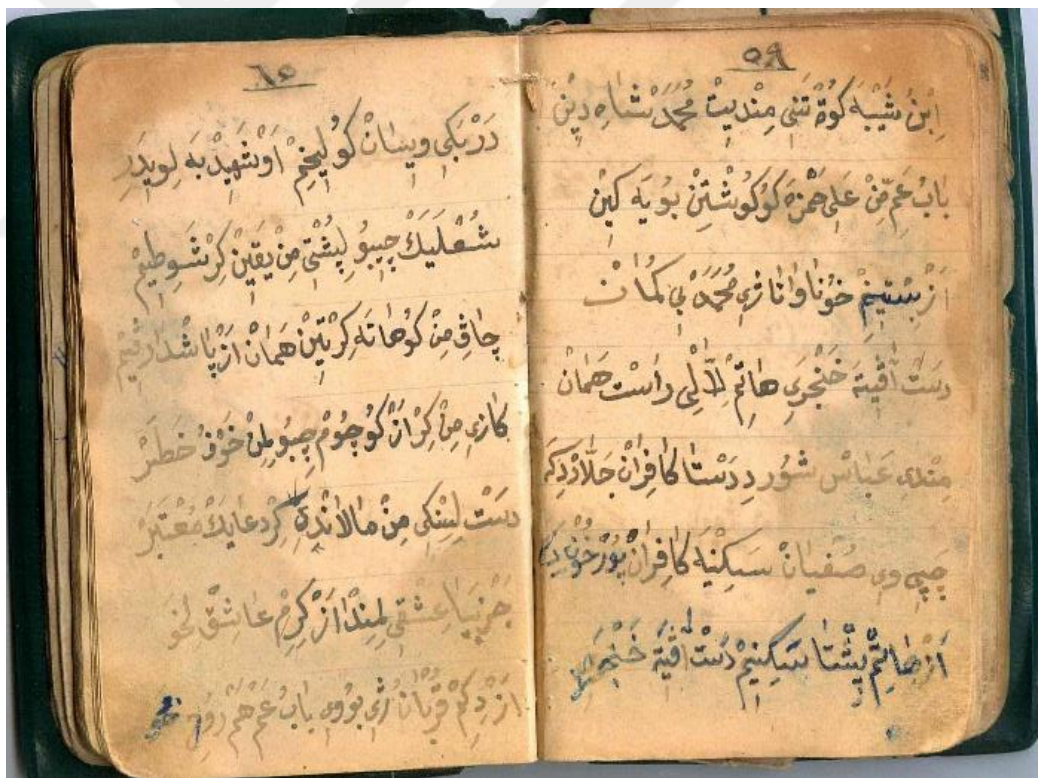 ٥٩
اِبْنُ شَيْبَه كُوتْ تَنَي مِنْدِيتْ مُحَمَّدْ شَاهِ دِينْ
بَابُ عَمِّ مِنْ عَلِي حَمْزَه كُو كُوشْتِنْ بُويَه كِينْ
اَزْ بِسْتِينِمْ خُونَا وَانَا ژِي مُحَمَّدْ بِي كُمَانْ
دَسْتْ اَڤِيتَه خَنْجَرِي هَاتِمْ لِاَلِي رَاسْت هَمَانْ
عَبَّاسْ شُورْ دِ دَسْتَا كَافِرَانْ جَلَّادْ دِكَرْ
چَپِي وِي صُفْيَانْ سَكِنْيَه كَافِرَانْ پُورْ خُونْ دِكَرْ
اَزْ هَاتِمْ پِشْتَا سَكِنِيمْ دَسْتْ اَڤِيَه خَنْجَرِي
٦٠
دَرْبَكِي وِيسَانْ كُو لِيخِمْ اَوْ شَهِيدْ بَه لِوِيدَرِ
شُعْلَيَكْ چِيبُو لِپُشْتِي مِنْ يَقِينْ كِرْ شَوِطِيمْ
چَاڤِي مِنْ كُو هَاتَه كِرْتِينْ هَمَانْ اَزْ پَاشْدَا رَڤِيمْ
كَازِي مِنْ كِرْ اَزْ كُو چُومْ چِيبُو لِمِنْ خَوْفُ خَطَرْ
دَسْتْ لِسِنْكِي مِنْ مَالَانْدِي كِرْ دُعَايَكْ مُعْتَبَرْ
عِشْقِي لِمِنْدَا اَزْ كِرِمْ عَاشِقْ لِخَوْ
اَزْ دِكَمْ قُرْبَانْ ژِي بُووِي بَابُ عَمْ هَمْ رُوحِ خَوْ